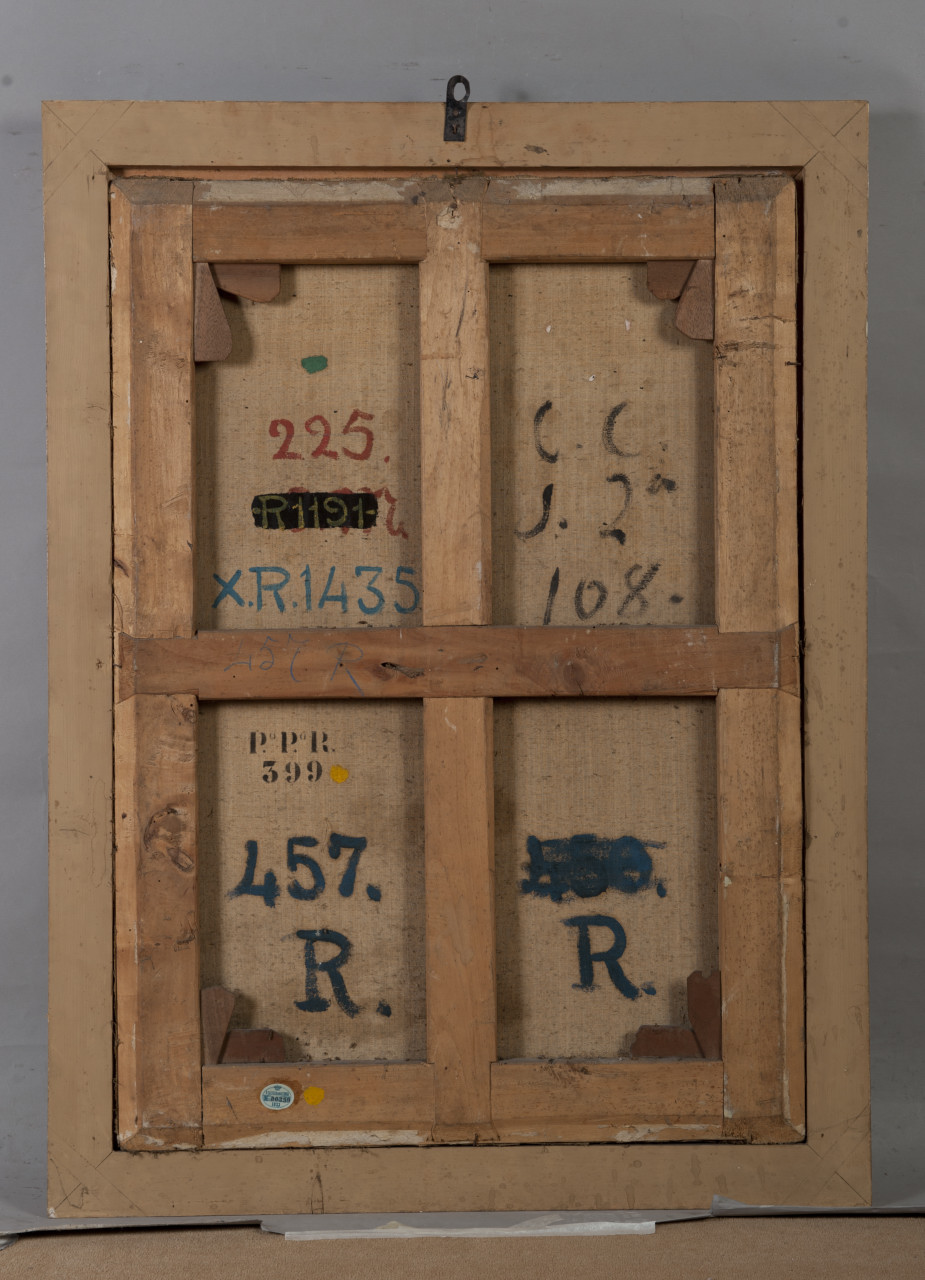 225.
R1191-
X.R.1435
C. C.
J. 2ª
108.
457 R
P.ª P.ª R.
399
457.
R.
R.